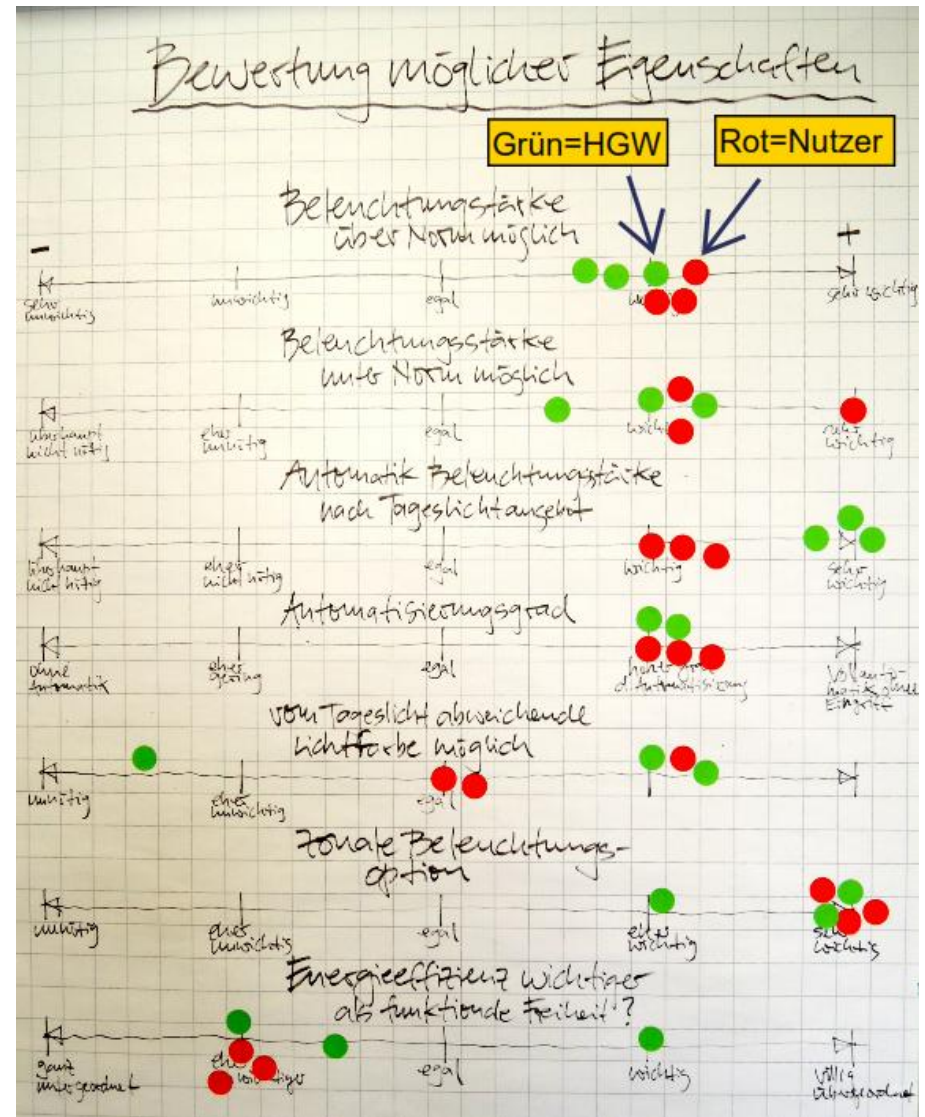 Bewertung möglicher Eigenschaften
Grün=HGW
Rot=Nutzer
Beleuchtungstärke
über Norm möglich
- +
sehr unwichtig
unwichtig
egal
sehr wichtig
Beleuchtungsstärke
unter Norm möglich
überhaupt nicht nötig
eher unnötig
egal
wichtig
Automatik Beleuchtungsstärke
nach Tageslichtangebot
überhaupt nicht nötig
eher nicht nötig
egal
wichtig
sehr wichtig
Automatisierungsgrad
ohne Automatik
eher gering
egal
d. Automatisierung
Vollautomatik ohne Eingriff
vom Tageslicht abweichende
Lichtfarbe möglich
unnötig
eher unwichtig
egal
Zonale Beleuchtungs-
option
unnötig
eher unwichtig
egal
eher wichtig
sehr wichtig
Energieeffizienz wichtiger
als funktionde Freiheit?
ganz untergeordnet
egal
wichtig
völlig übergeordnet